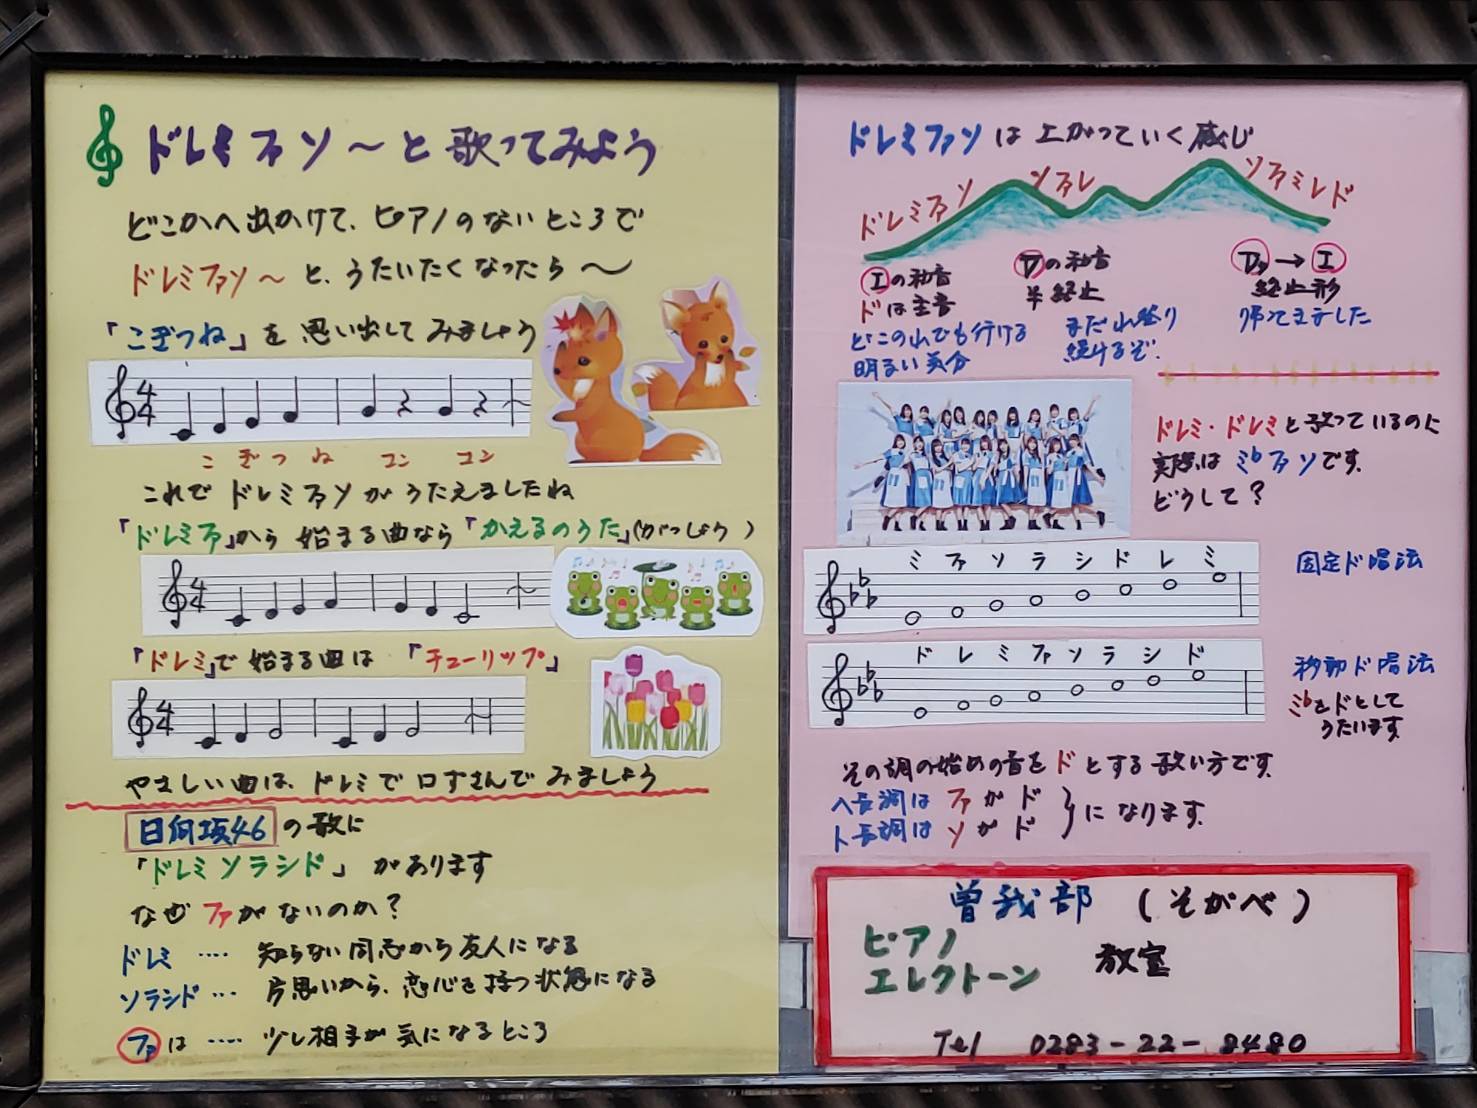 ドレミファソ〜と歌ってみよう
どこかへ出かけて、ピアノのないところで
ドレミファソ〜と、うたいたくなったら〜
「こぎつね」を思い出してみましょう
4
4
こぎつね コン コン
これでドレミファソがうたえましたね
「ドレミファ」から始まる曲なら「かえるのうた」(がっしょう)
4
4
「ドレミ」で始まる曲は「チューリップ」
4
4
やさしい曲は、ドレミで口ずさんでみましょう
日向坂46の歌に
「ドレミソラシド」があります
なぜファがないのか?
ドレミ…. 知らない同志から友人になる
ソラシド… 片思いから、恋心を持つ状態になる
ファは…. 少し相手が気になるところ
ドレミファソは上がっていく感じ
ドレミファソ ソファレ ソファミレド
Iの和音
ドは主音
どこの山でも行ける
明るい気分
Vの和音
半終止
まだ山登り
続けるぞ.
V₇→I
終止形
帰ってきました
ドレミ・ドレミと歌っているのに
実際はミ♭ファソです.
どうして?
ミ ファ ソ ラ シ ド レ ミ
固定ド唱法
ド レ ミ ファ ソ ラ シ ド
移動ド唱法
ミ♭をドとして
うたいます
その調の始めの音をドとする歌い方です.
ヘ長調は ファがド
ト長調は ソがド
}になります.
曽我部 (そがべ)
ピアノ
エレクトーン
教室
Tel 0283-22-8480